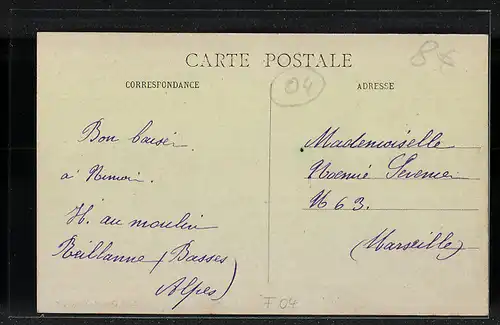 CARTE POSTALE
8€
04
CORRESPONDANCE
ADRESSE
Bon baiser
à
H. au moulin
Reillanne (Basses
Alpes)
Mademoiselle
Noémie
N 63.
(Marseille)
F 04